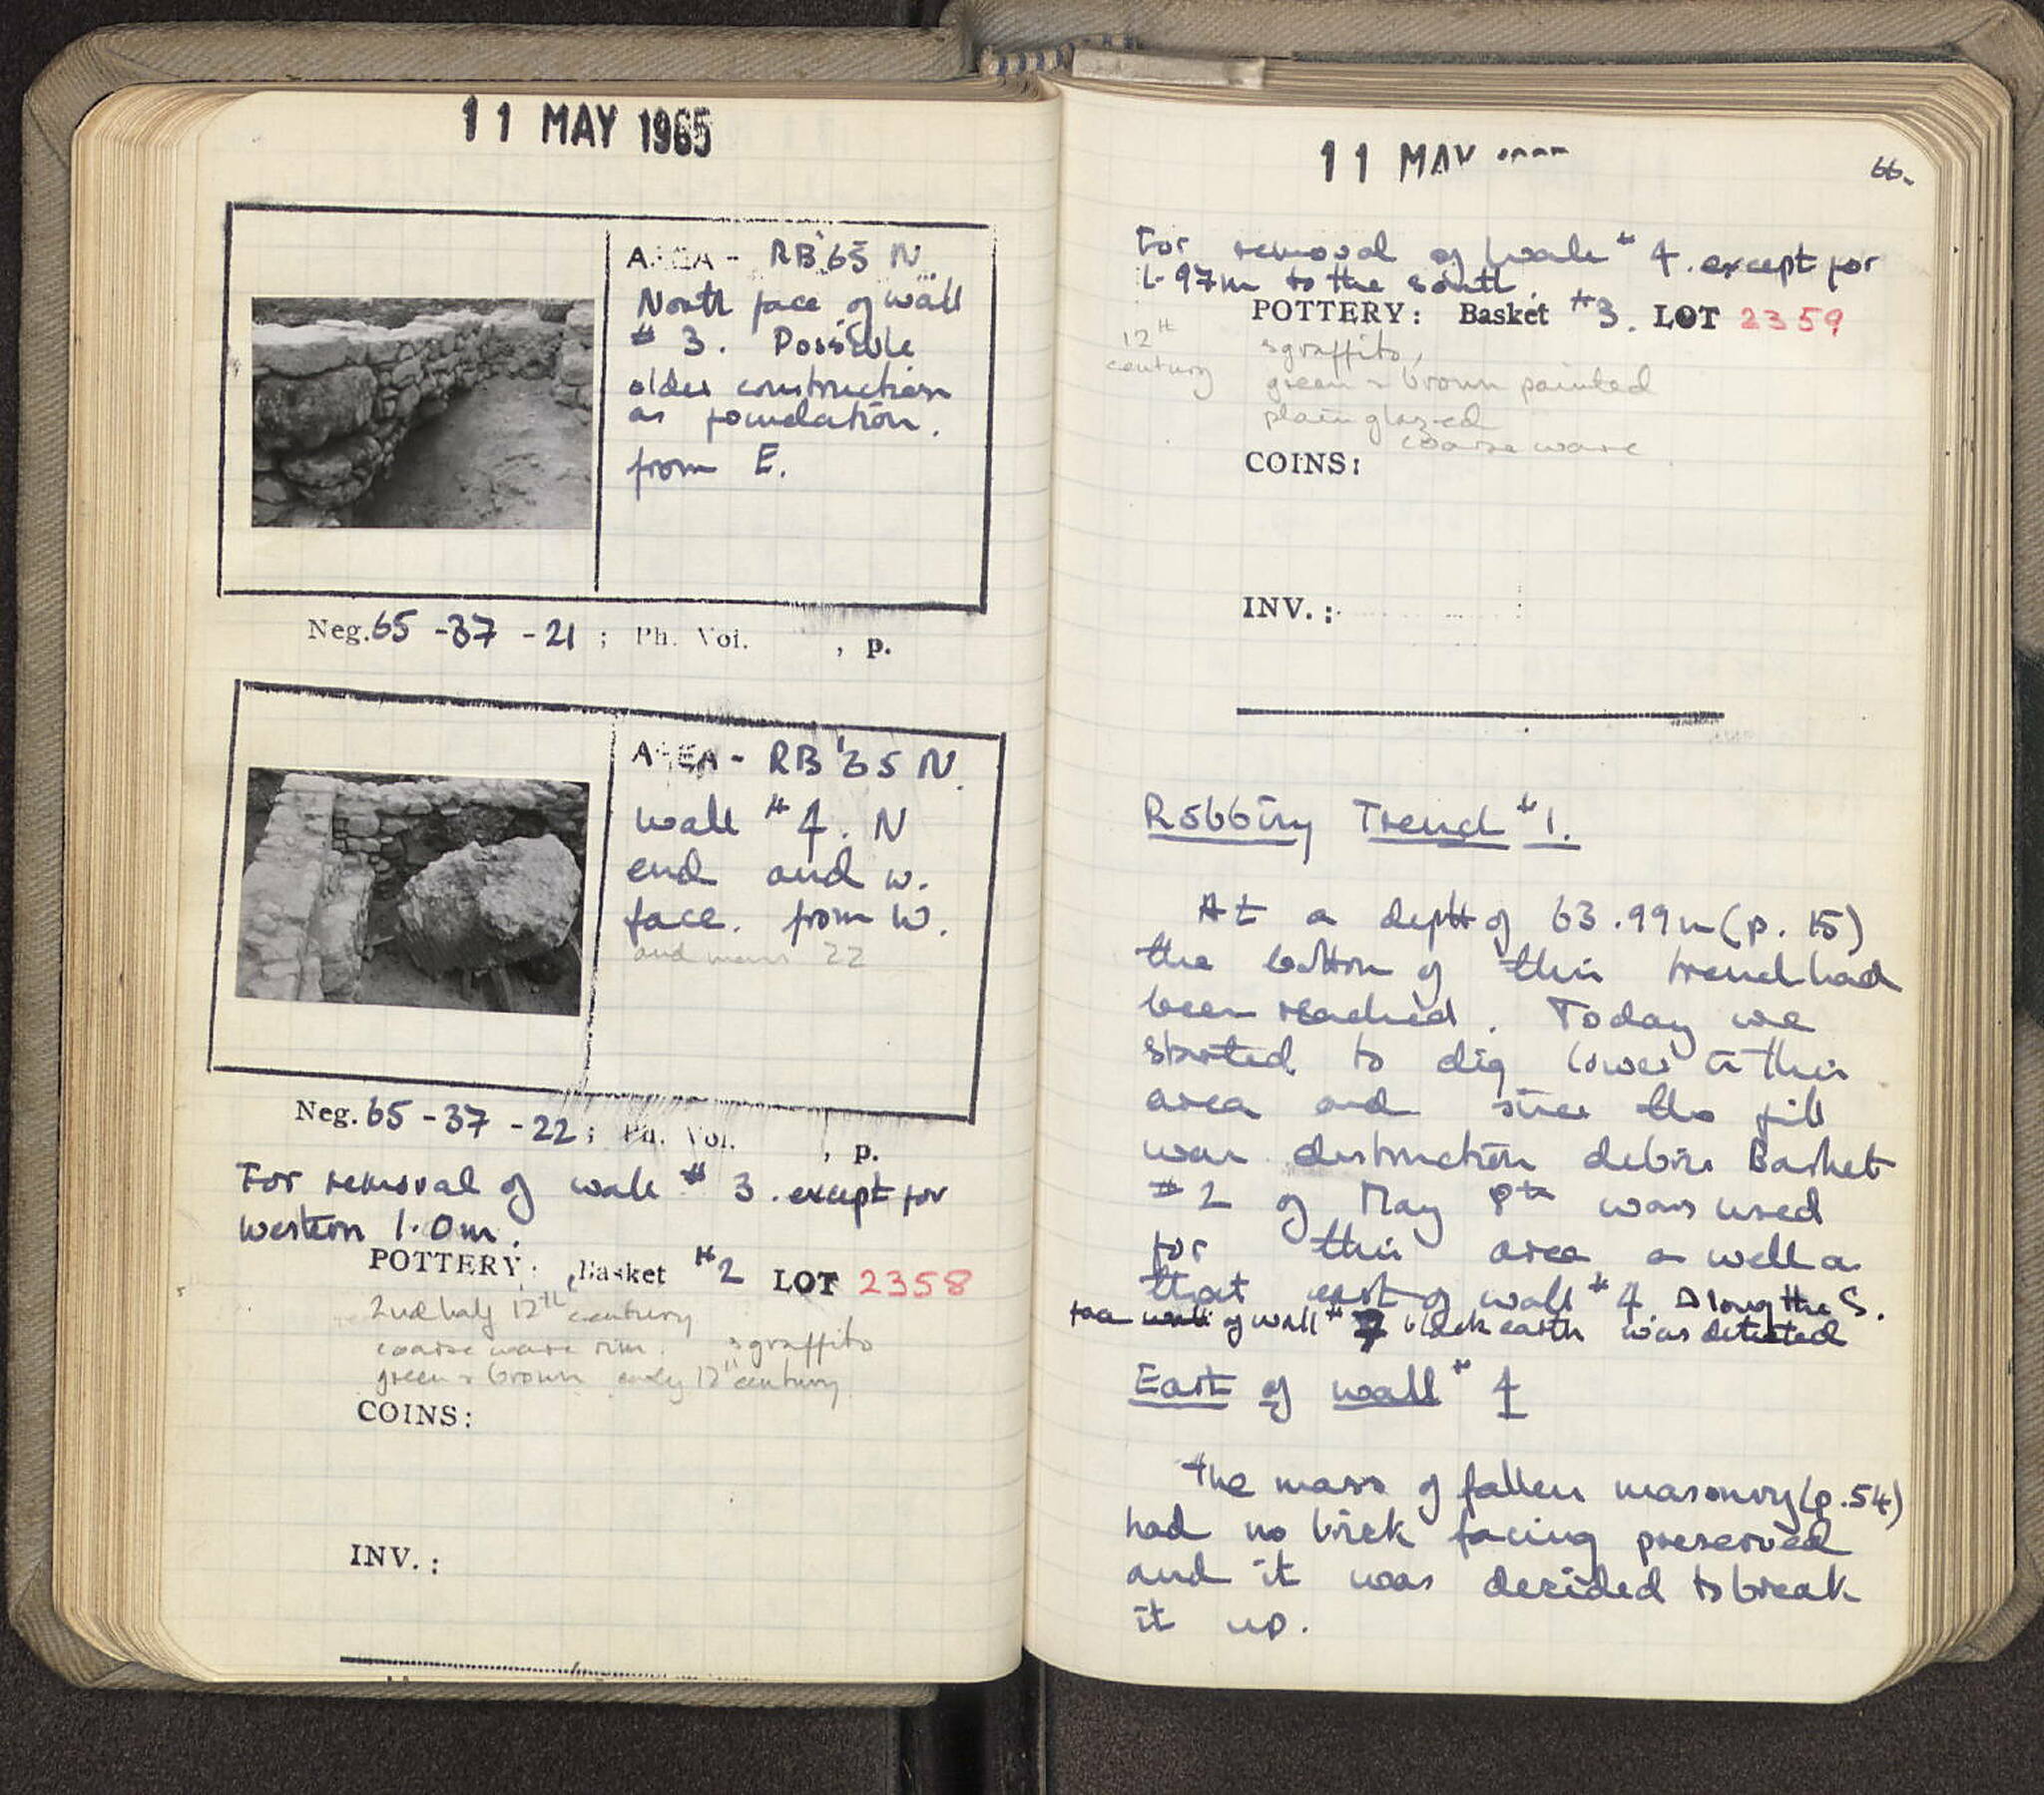 11 MAY 1965
AREA - RB'65 N.
North face of wall
# 3. Possible
older construction
as foundation.
from E.
Neg. 65 - 37 - 21 ; Ph. Vol. , p.
AREA - RB'65 N.
Wall # 4. N
end and w.
face. from W.
and mass 22
Neg. 65 - 37 - 22 ; Ph. Vol. , p.
For removal of wall # 3. except for
western 1.0m.
POTTERY: Basket #2 LOT 2358
2nd half 12th century
coarse ware rim. sgraffito
green & brown early 12th century
COINS:
INV. :
11 MAY
66.
For removal of wall # 4. except for
1.97m to the south.
POTTERY: Basket #3. LOT 2359
12th
century
sgraffito,
green & brown painted
plain glazed
coarse ware
COINS:
INV. :
Robbing Trench #1.
At a depth of 63.99m (p. 15)
the bottom of this trench had
been reached. Today we
started to dig lower in this
area and since the fill
was destruction debris Basket
#2 of May 8th was used
for this area as well as
that east of wall #4. Along the S.
face of wall # 7 black earth was detected
East of wall # 4
The mass of fallen masonry (p.54)
had no brick facing preserved
and it was decided to break
it up.